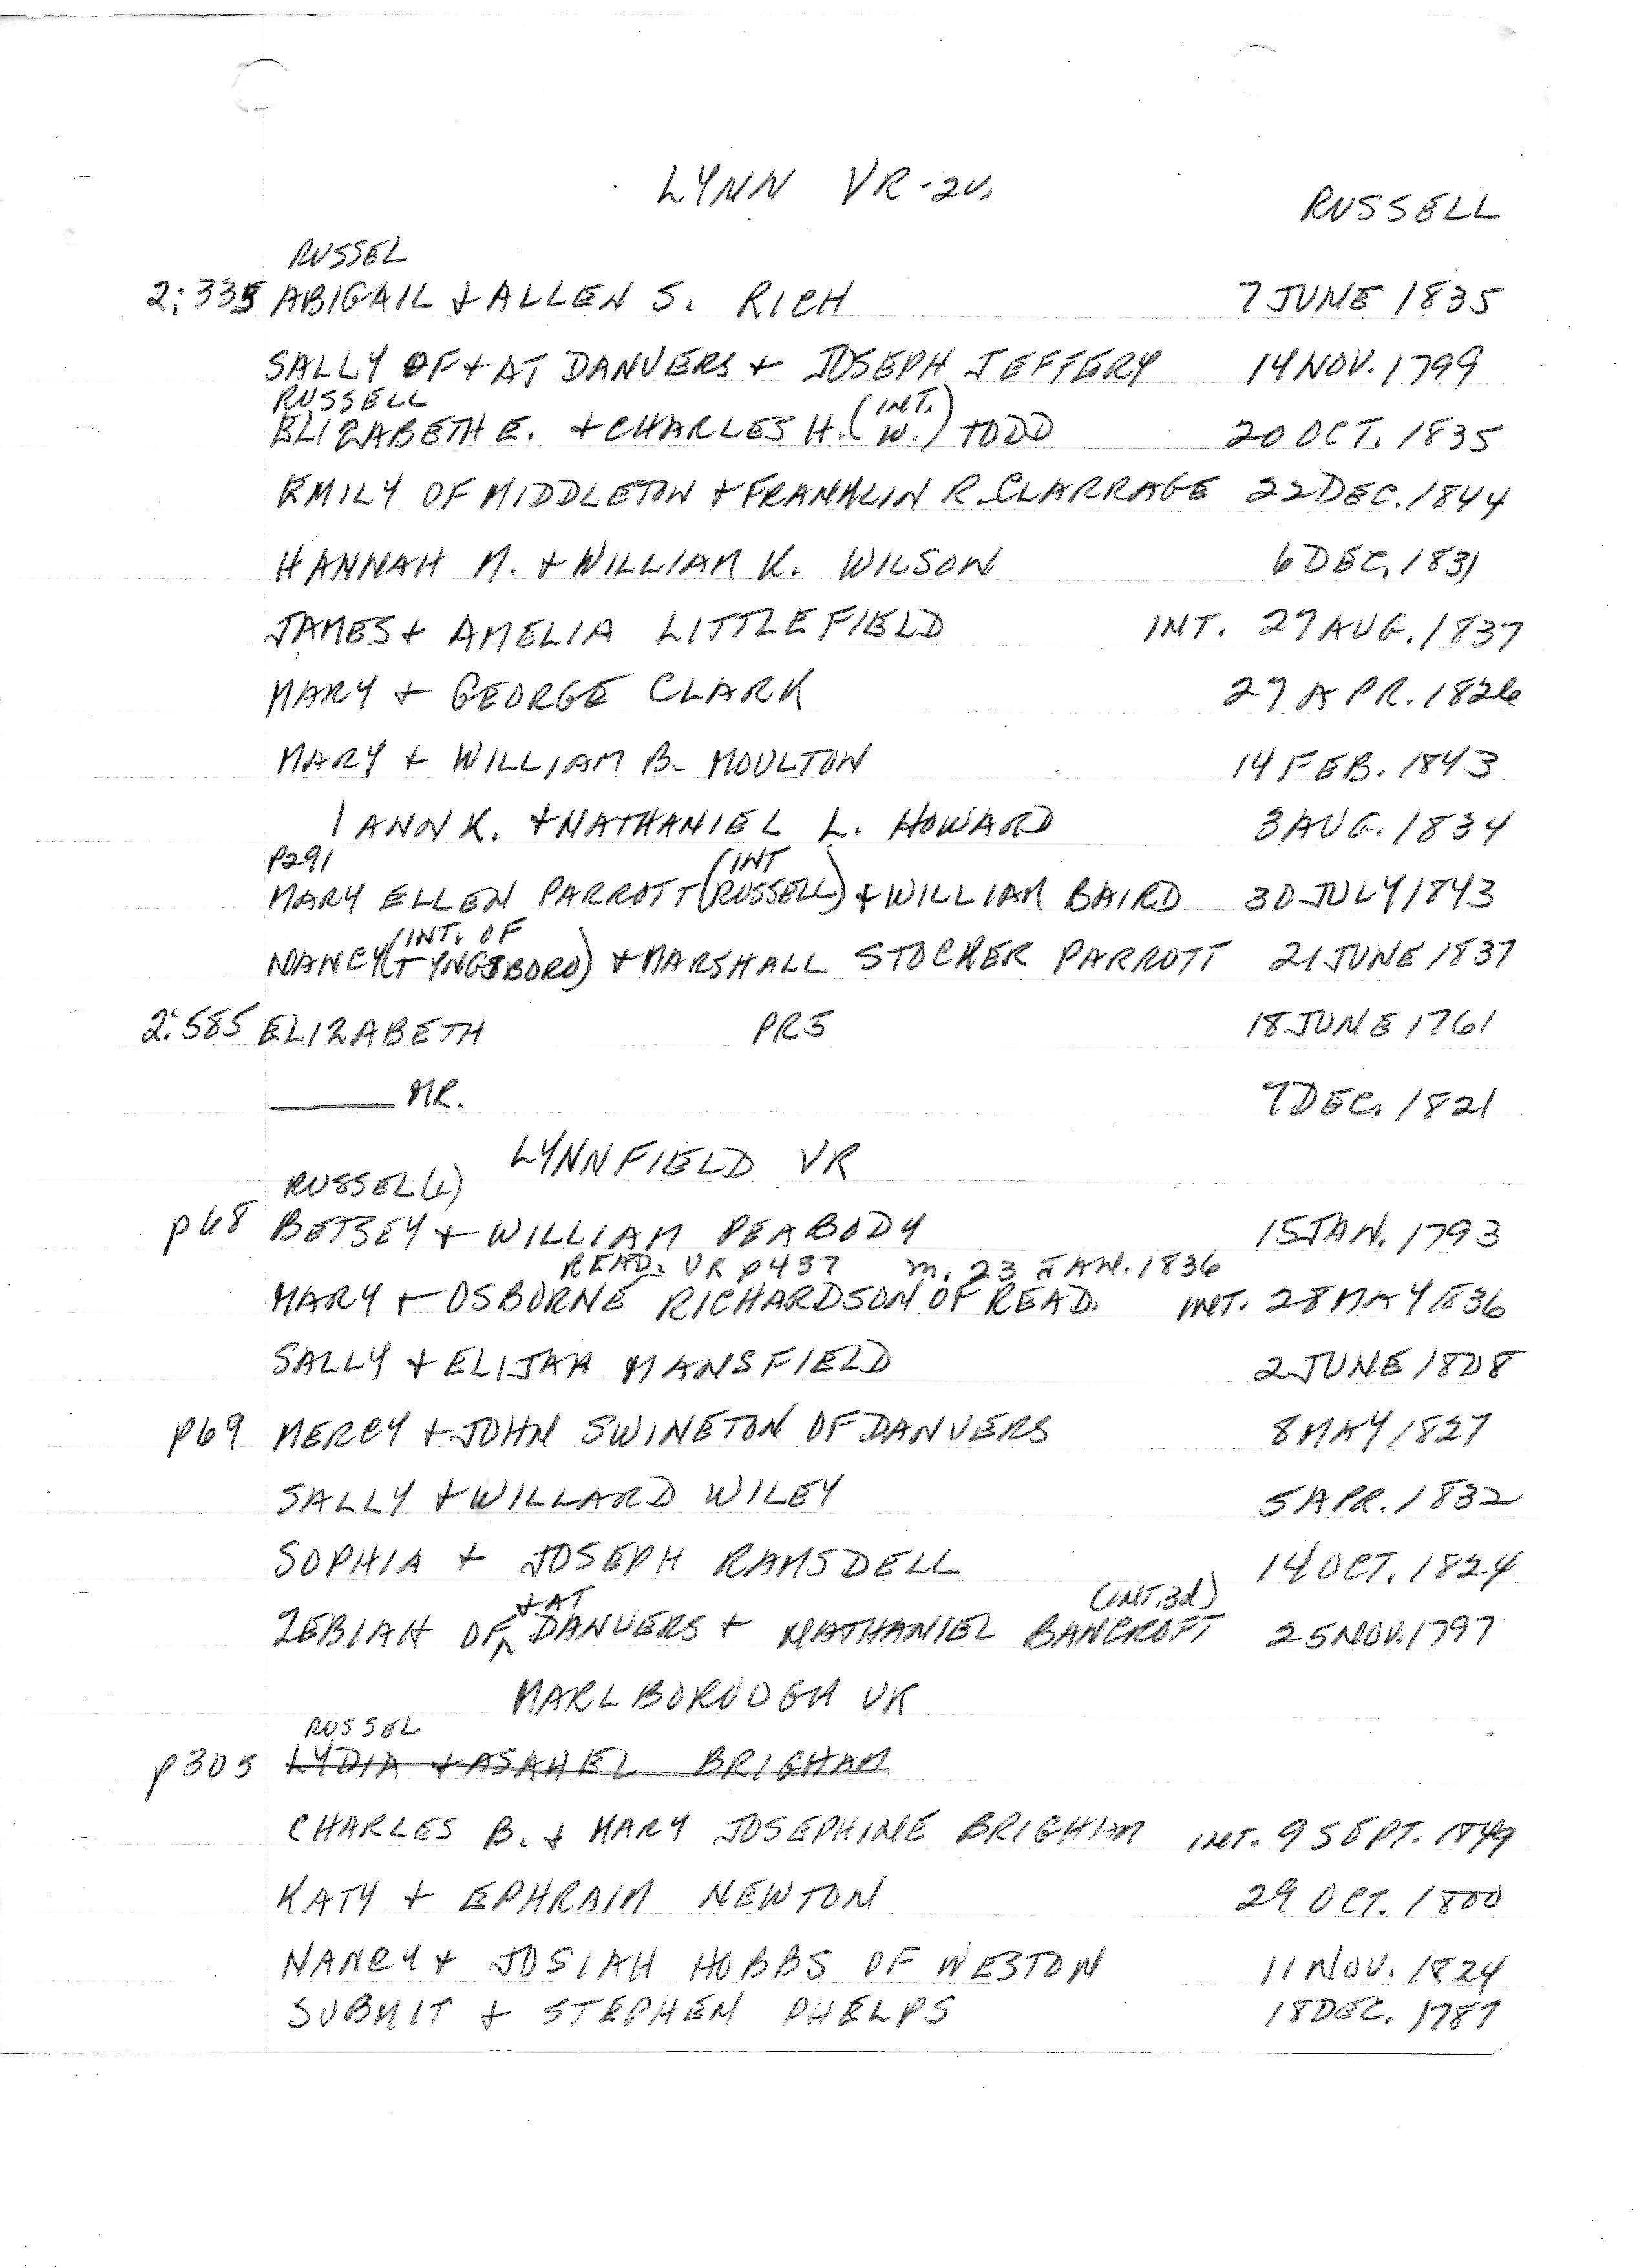 LYNN VR-2v.
RUSSELL
RUSSEL
2:335 ABIGAIL + ALLEN S. RICH 7 JUNE 1835
SALLY OF + AT DANVERS + JOSEPH JEFFERY 14 NOV. 1799
RUSSELL
ELIZABETH E. + CHARLES H. (INT. W.) TODD 20 OCT. 1835
EMILY OF MIDDLETON + FRANKLIN R. CLARRAGE 22 DEC. 1844
HANNAH M. + WILLIAM K. WILSON 6 DEC. 1831
JAMES + AMELIA LITTLEFIELD INT. 27 AUG. 1837
MARY + GEORGE CLARK 27 APR. 1826
MARY + WILLIAM B. MOULTON 14 FEB. 1843
1 ANN K. + NATHANIEL L. HOWARD 3 AUG. 1834
P291
MARY ELLEN PARROTT (INT RUSSELL) + WILLIAM BAIRD 30 JULY 1843
NANCY (INT. OF TYNGSBORO) + MARSHALL STOCKER PARROTT 21 JUNE 1837
2:585 ELIZABETH PR5 18 JUNE 1761
——— MR. 7 DEC. 1821
LYNNFIELD VR
RUSSEL(L)
p68 BETSEY + WILLIAM PEABODY 15 JAN. 1793
READ. VR p437 m. 23 JAN. 1836
MARY + OSBORNE RICHARDSON OF READ. INT. 28 MAY 1836
SALLY + ELIJAH MANSFIELD 2 JUNE 1808
p69 MERCY + JOHN SWINETON OF DANVERS 8 MAY 1827
SALLY + WILLARD WILEY 5 APR. 1832
SOPHIA + JOSEPH RAMSDELL 14 OCT. 1824
ZEBIAH OF + AT DANVERS + NATHANIEL BANCROFT (INT. 3d) 25 NOV. 1797
MARLBOROUGH VR
RUSSEL
p305 LYDIA + ASAHEL BRIGHAM
CHARLES B. + MARY JOSEPHINE BRIGHAM INT. 9 SEPT. 1849
KATY + EPHRAIM NEWTON 29 OCT. 1800
NANCY + JOSIAH HOBBS OF WESTON 11 NOV. 1824
SUBMIT + STEPHEN PHELPS 18 DEC. 1787